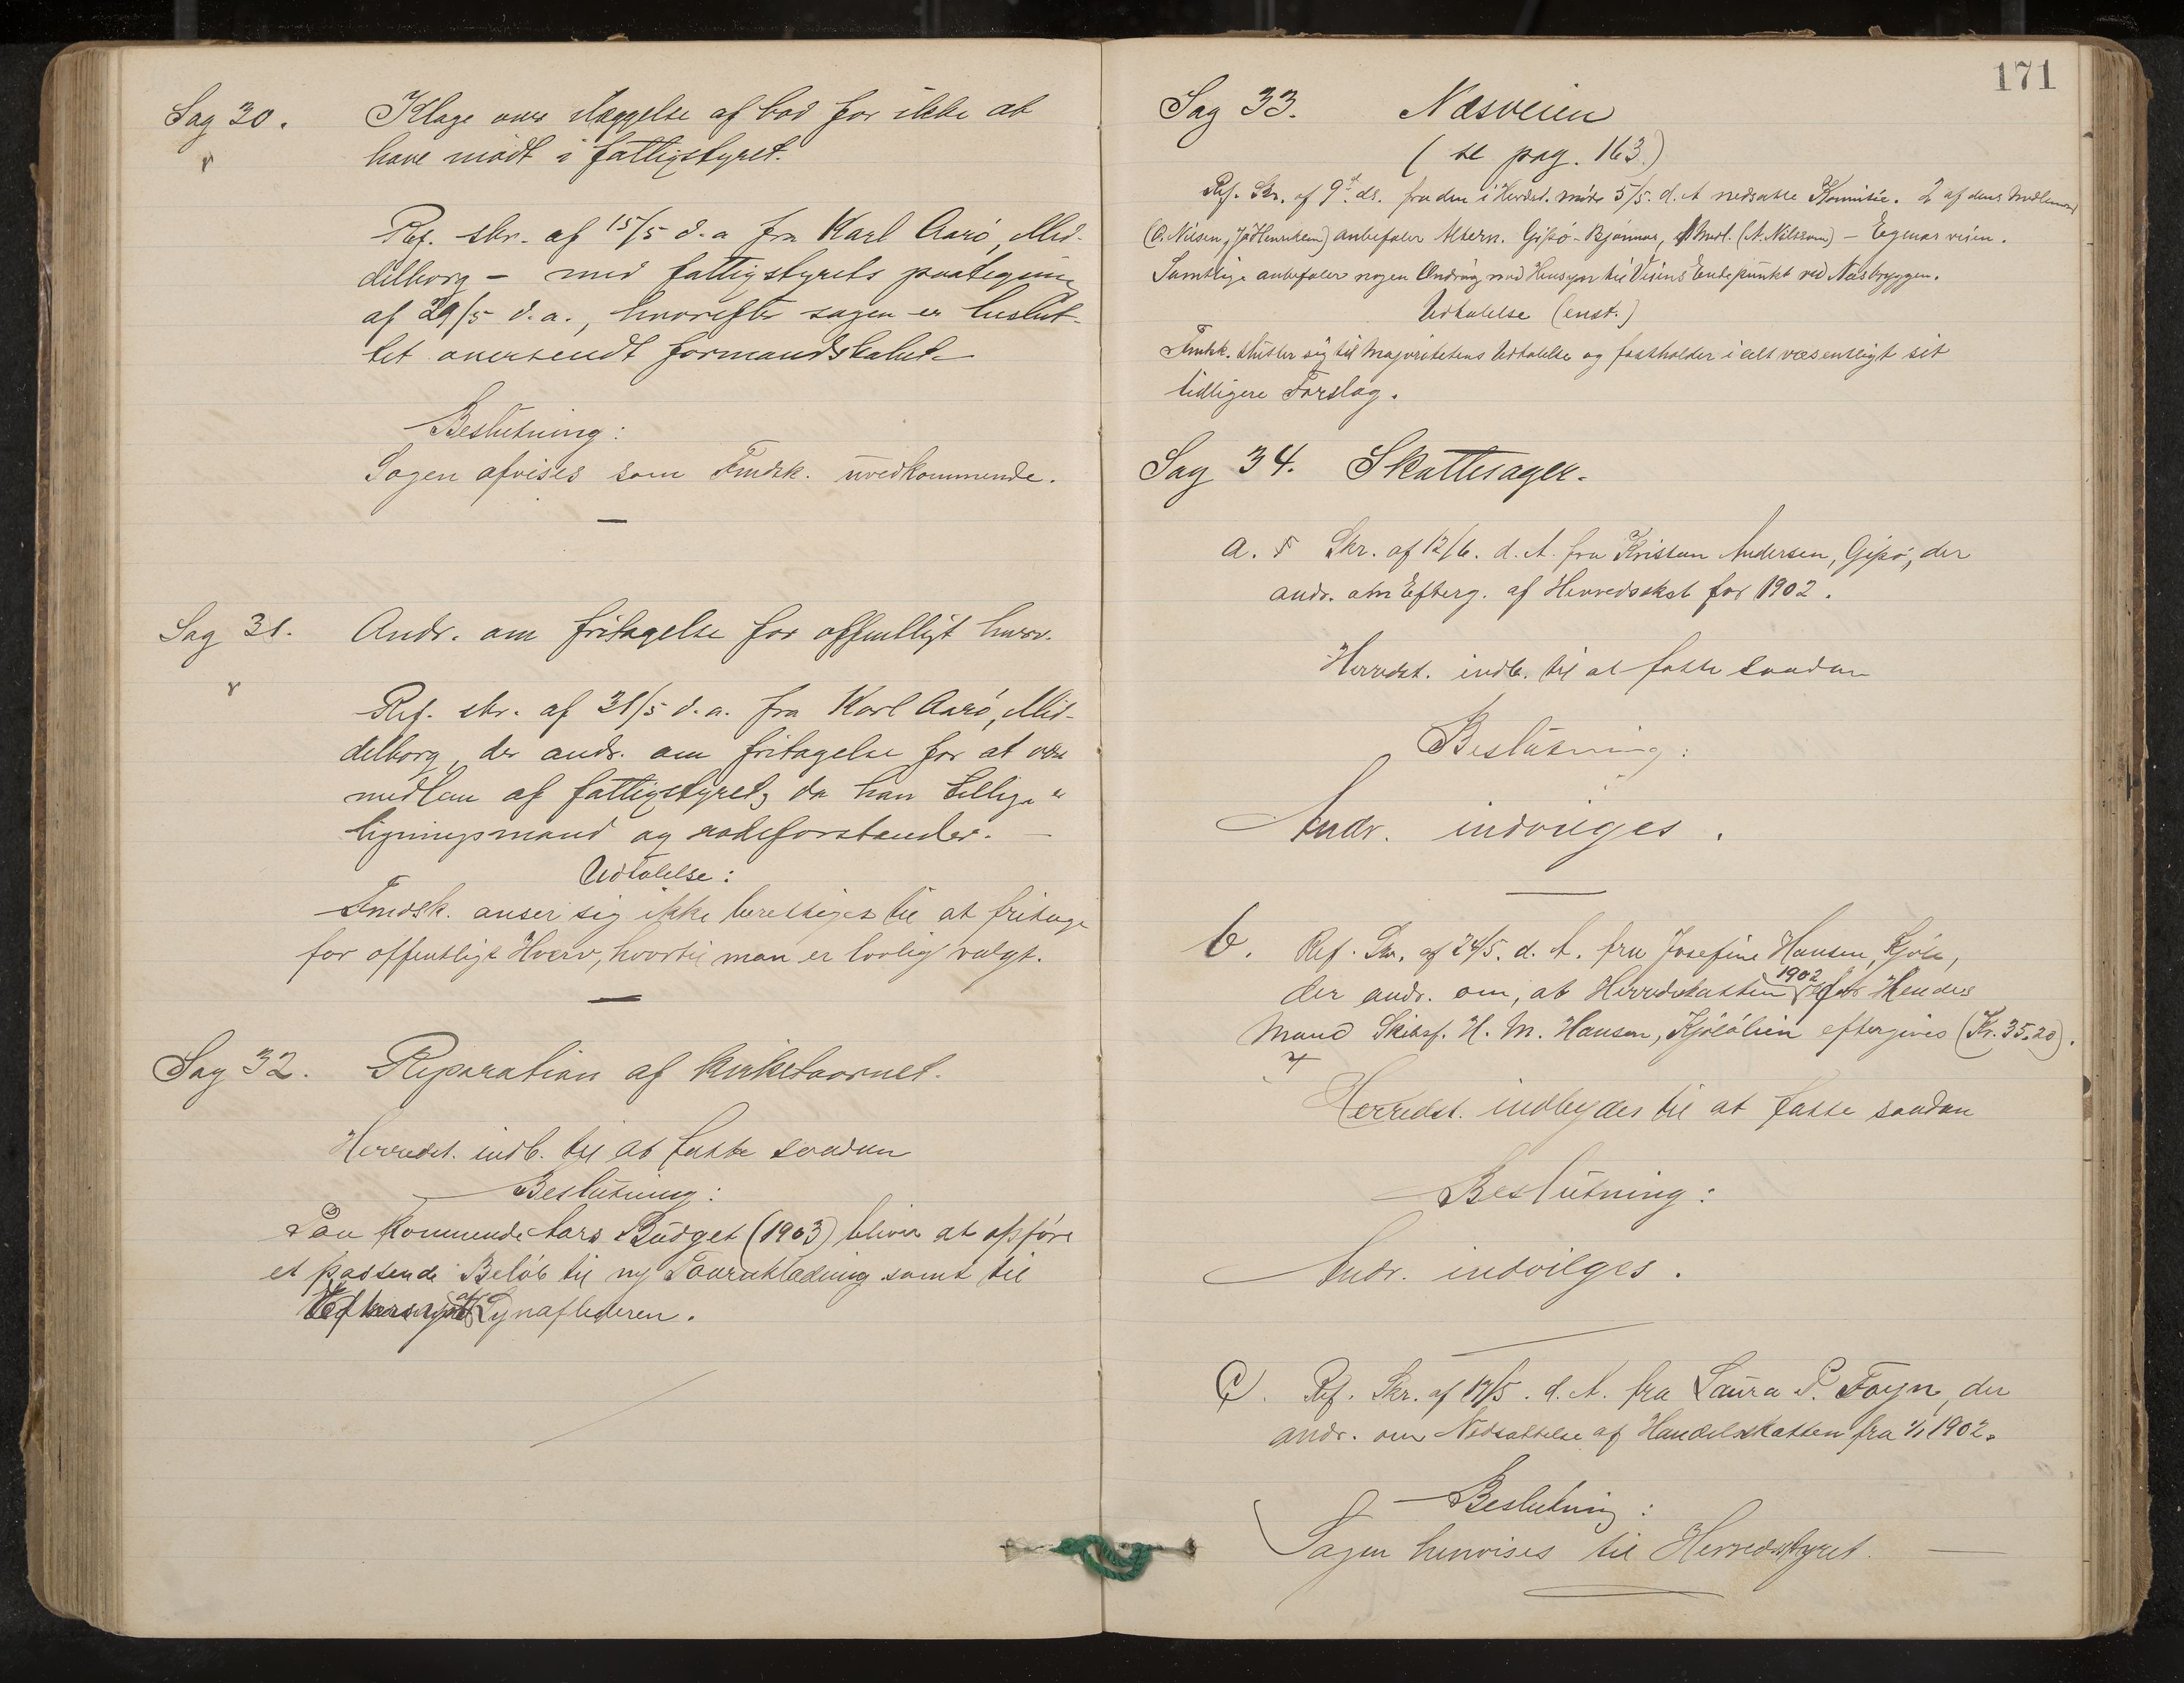 Sag 30. Klage over ilæggelse af bod for ikke at
have mödt i fattigstyret.
Ref. skr. af 15/5 d.a fra Karl Aarö, Mid-
delborg - med fattigstyrets paategning
af 29/5 d.a., hvorefter sagen er beslut-
tet oversendt formandskabet
Beslutning:
Sagen afvises som Fmdsk. uvedkommende.
Sag 31. Andr. om fritagelse for offentligt hverv.
Ref. skr. af 31/5 d.a. fra Karl Aarö, Mid-
delborg, der andr. om fritagelse for at være
medlem af fattigstyret, da han tillige er
ligningsmand og rodeforstander. —
Udtalelse:
Fmdsk. anser sig ikke berettiget til at fritage
for offentligt Hverv, hvortil man er lovlig valgt.
Sag 32. Reparation af kirketaarnet.
Herredst. indb. til at fatte saadan
Beslutning:
Paa kommende Aars Budget (1903) bliver at opföre
et passende Belöb til ny Taarnklædning samt til
af Lynaflederen.
171
Sag 33. Næsveien
(se pag. 163)
Ref. Skr. af 9d ds. fra den i Herdst. möde 5/5. d. A nedsatte Komitée. 2 af dens Medlemmer
(O. Nilsen, ) anbefaler Altern. Gipö - Bjönnes, 1 Medl. (A. Nilsson) - Eignas veien.
Samtlige anbefaler nogen Ændring med Hensyn til Veiens Endepunkt ved Næsbryggen.
Udtalelse (enst.)
Fmdsk. slutter sig til Majoritetens Udtalelse og fastholder i alt væsentligt sit
tidligere Forslag.
Sag 34. Skattesager.
a. Skr. af 12/6. d. A. fra Kristian Andersen, Gipö, der
andr. om Efterg. af Herredsskat for 1902.
Herredst. indb. til at fatte saadan
Beslutning:
Andr. indvilges.
b. Ref. Skr. af 24/5. d. A. fra Josefine Hansen, Kjöle,
der andr. om, at Herredsskatten 1902 for Hendes
Mand Skibsf. H. M. Hansen, eftergives (Kr. 35.20).
Herredst. indbydes til at fatte saadan
Beslutning:
Andr. indvilges.
C. Ref. Skr. af 17/5. d. A. fra Laura P. Foyn, der
andr. om Nedsættelse af Handelsskatten fra 1/1 1902.
Beslutning:
Sagen henvises til Herredsstyret. —